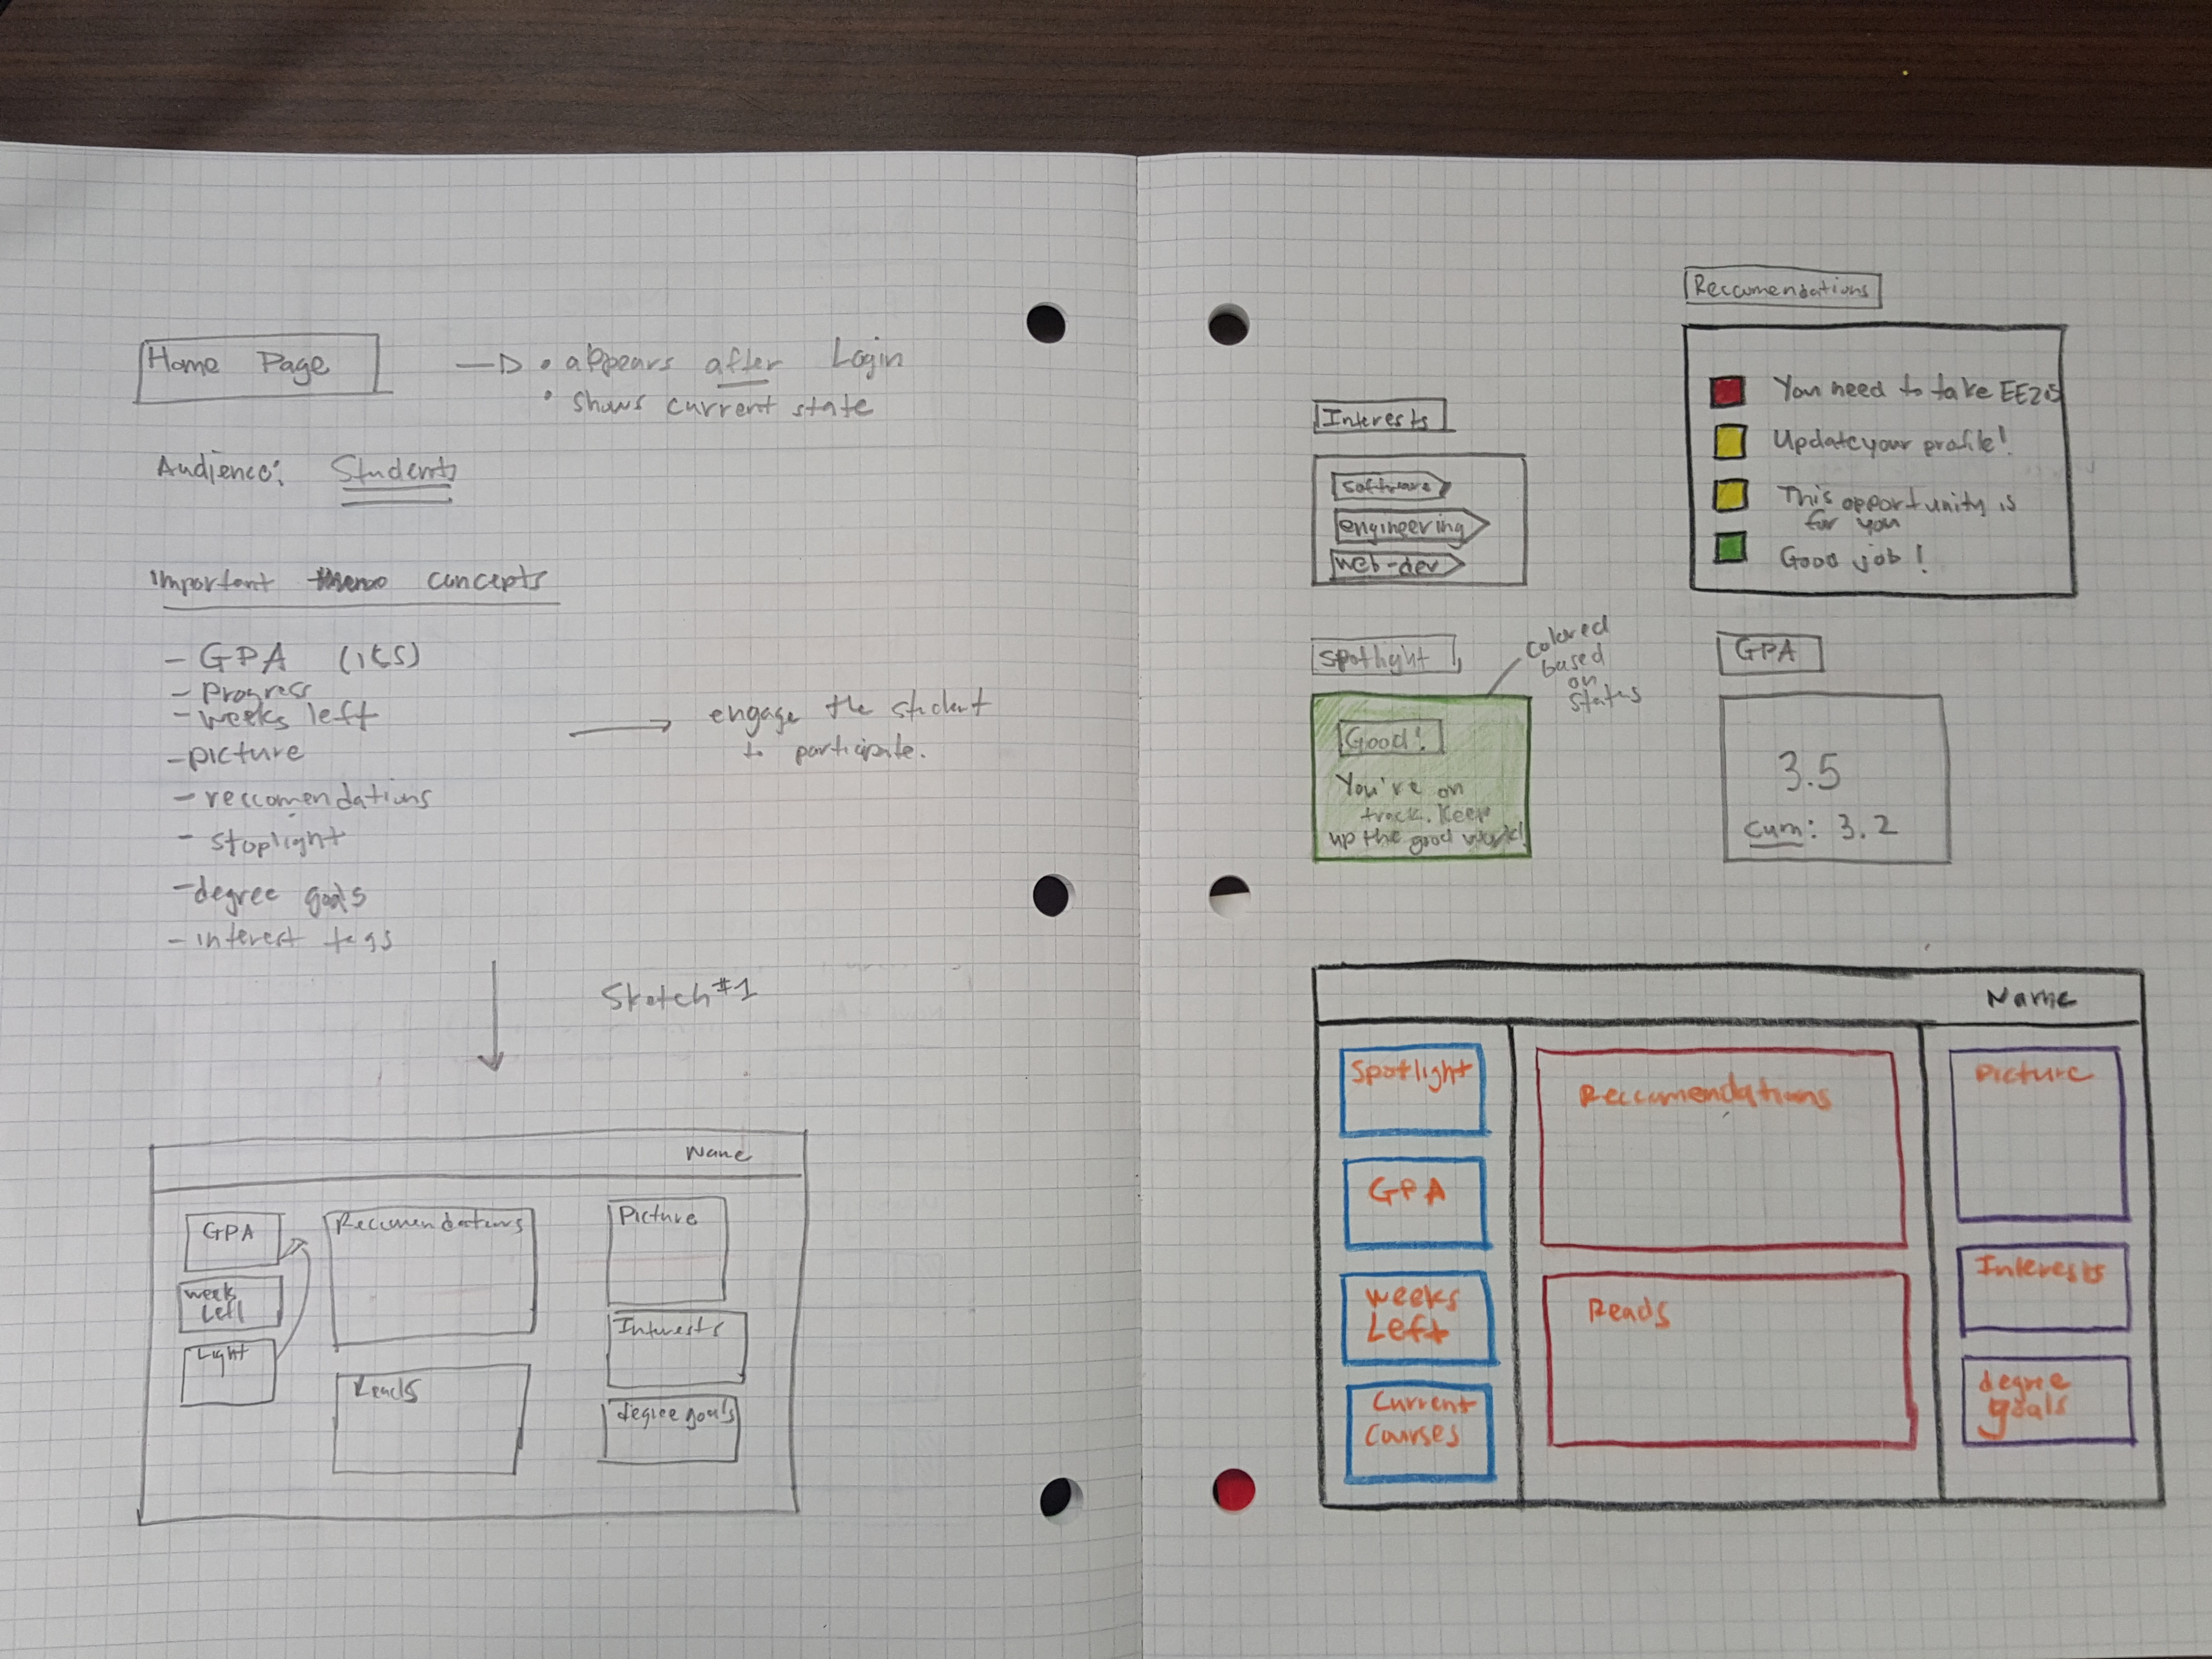 Home Page
—D • appears after Login
• shows current state
Audience: Students
Important concepts
- GPA
- Progress
- weeks left
- picture
- reccomendations
- stoplight
- degree goals
- interest tags
engage the student
to participate.
Sketch #1
Name
GPA
weeks
Left
Light
Reccomendations
Reads
Picture
Interests
degree goals
Reccomendations
You need to take
Update your profile!
This opportunity is
for you
Good job!
Interests
software
engineering
web-dev
Spotlight
colored
based
on
status
Good!
You're on
track. Keep
up the good work!
GPA
3.5
cum: 3.2
Name
Spotlight
GPA
weeks
Left
Current
Courses
Reccomendations
Reads
Picture
Interests
degree
goals